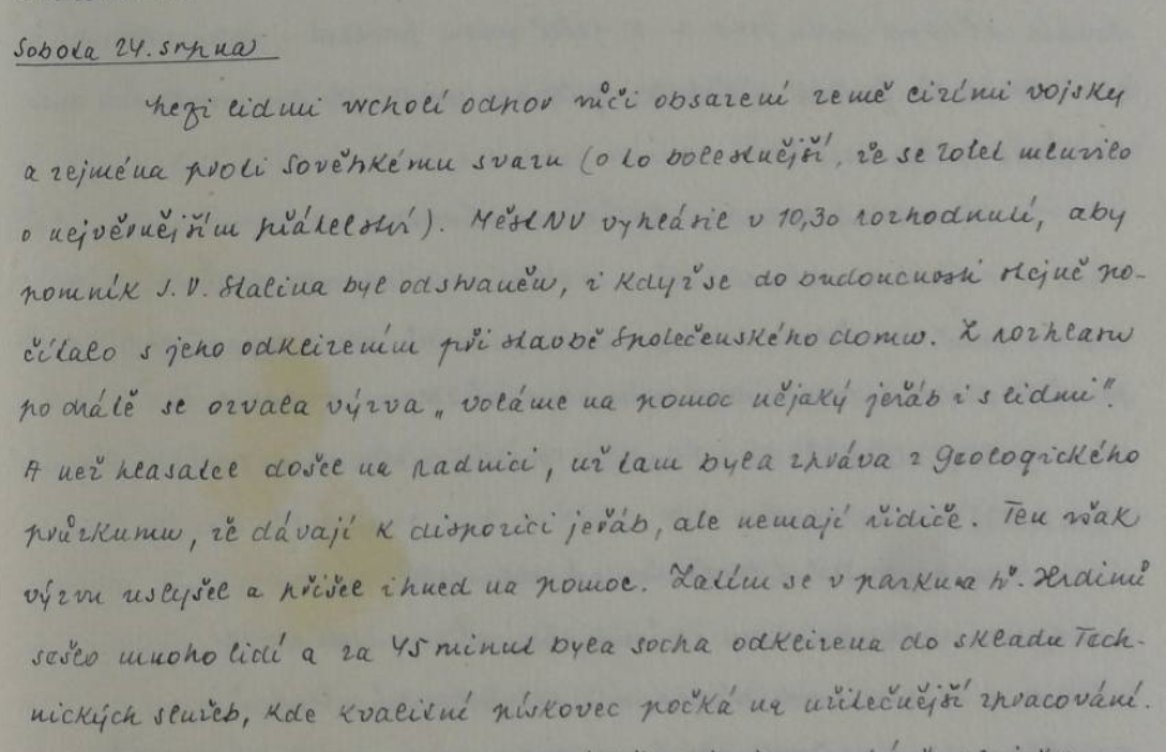 Sobota 24. srpna
Mezi lidmi vrcholí odpor vůči obsazení země cizími vojsky
a zejména proti Sovětskému svazu (o to bolestnější, že se tolik mluvilo
o nejvěrnějším přátelství). MěstNV vyhlásil v 10,30 rozhodnutí, aby
pomník J. V. Stalina byl odstraněn, i když se do budoucnosti stejně po-
čítalo s jeho odklizením při stavbě Společenského domu. Z rozhlasu
po drátě se ozvala výzva „voláme na pomoc nějaký jeřáb i s lidmi".
A než hlasatel došel na radnici, už tam byla zpráva z Geologického
průzkumu, že dávají k disposici jeřáb, ale nemají řidiče. Ten však
výzvu uslyšel a přišel ihned na pomoc. Zatím se v parku na n. Hrdinů
sešlo mnoho lidí a za 45 minut byla socha odklizena do skladu Tech-
nických služeb, kde kvalitní pískovec počká na užitečnější zpracování.